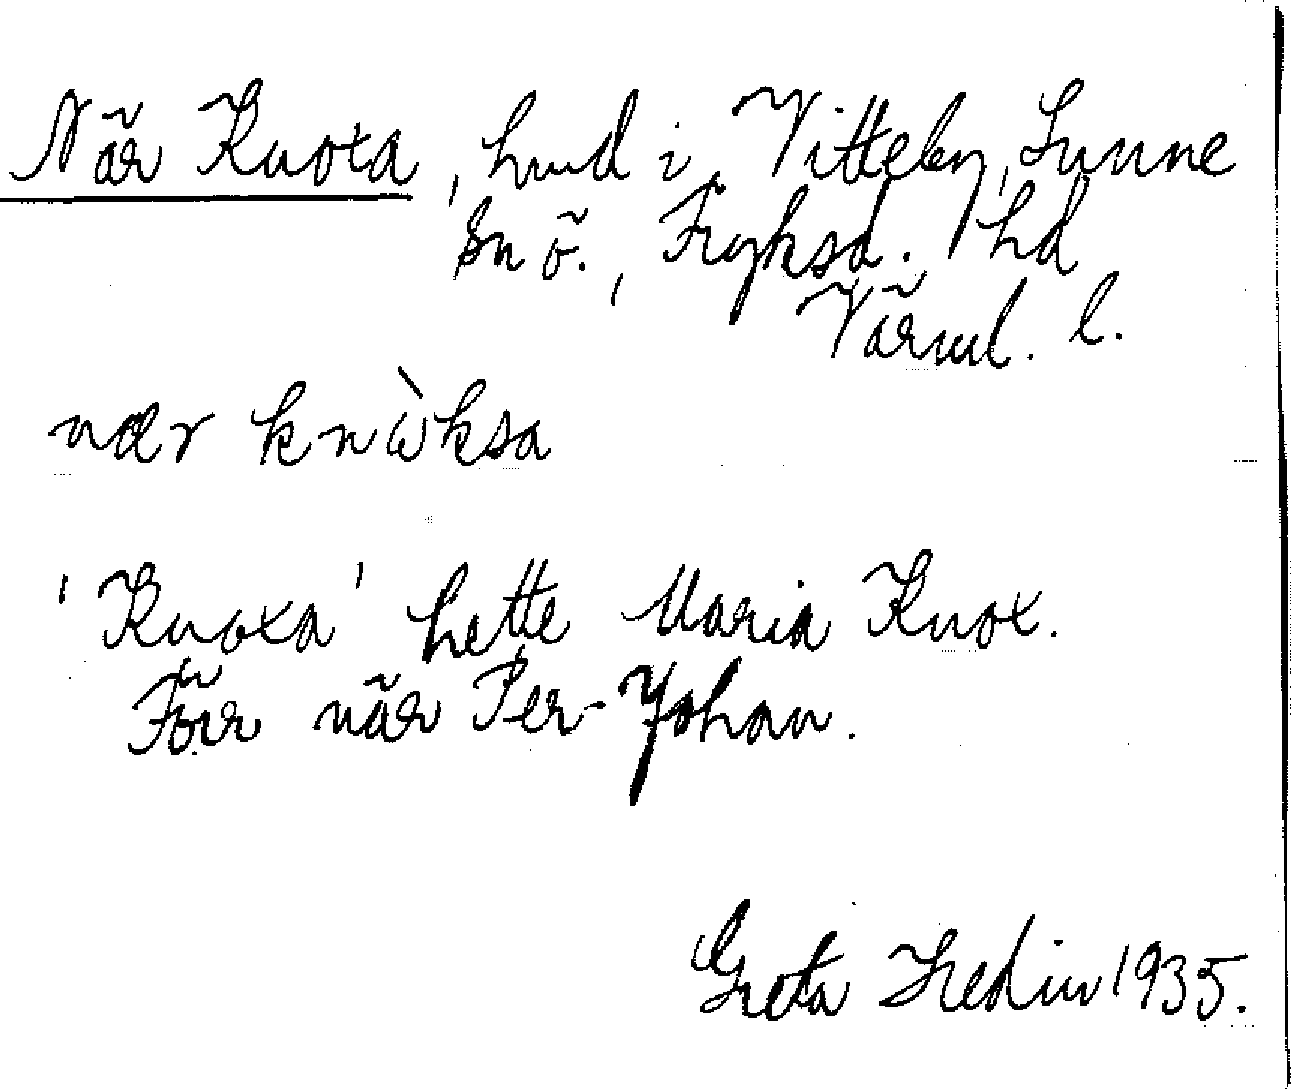 När Knoxa, hmd i Vitteby, Sunne
sn ö., Fryksd. hd
Värml. l.
nær knὼksa
'Knoxa' hette Maria Knox.
Förr när Per-Johan.
Greta Hedin 1935.